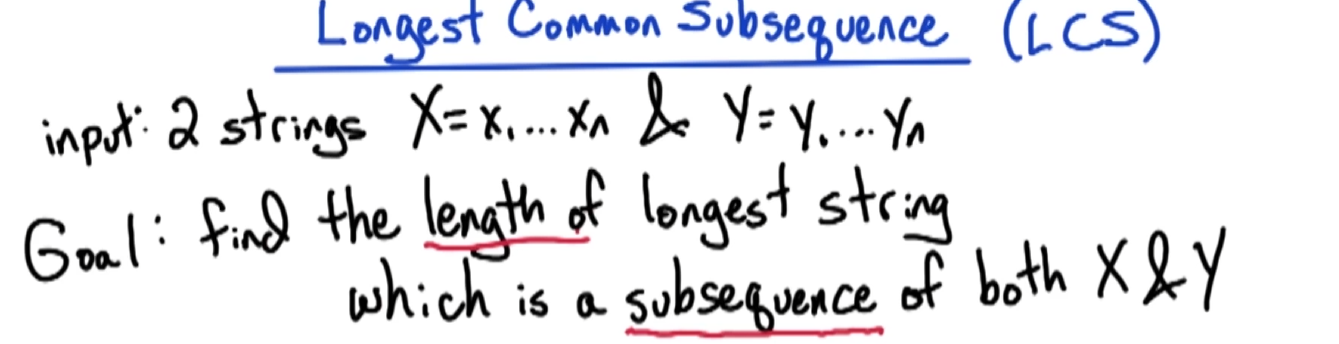 Longest Common Subsequence (LCS)
input: 2 strings X=x₁...xₙ & Y=y₁...yₙ
Goal: find the length of longest string
which is a subsequence of both X & Y